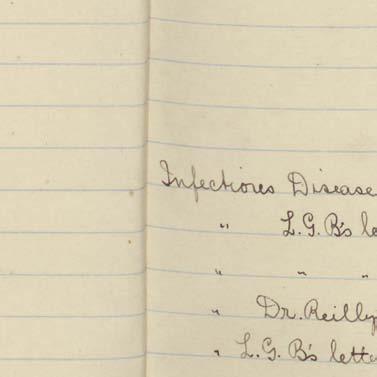 Infectious Disease
" L.G.B's le
" " "
" Dr. Reilly
" L.G. B's lette